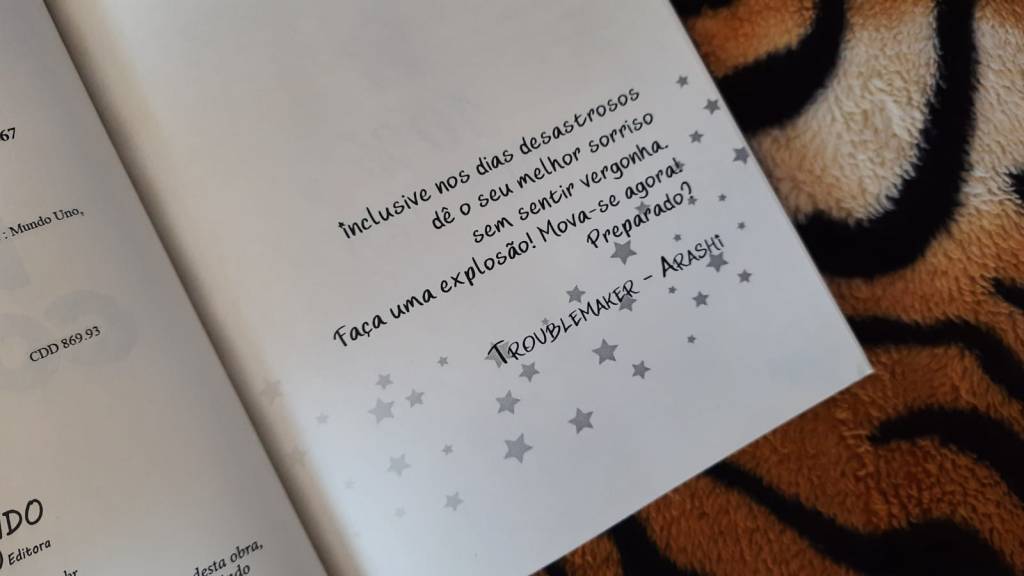 67
: Mundo Uno,
CDD 869.93
Editora
desta obra,
inclusive nos dias desastrosos
dê o seu melhor sorriso
sem sentir vergonha.
Faça uma explosão! Mova-se agora!
Preparado?
Troublemaker - Arashi